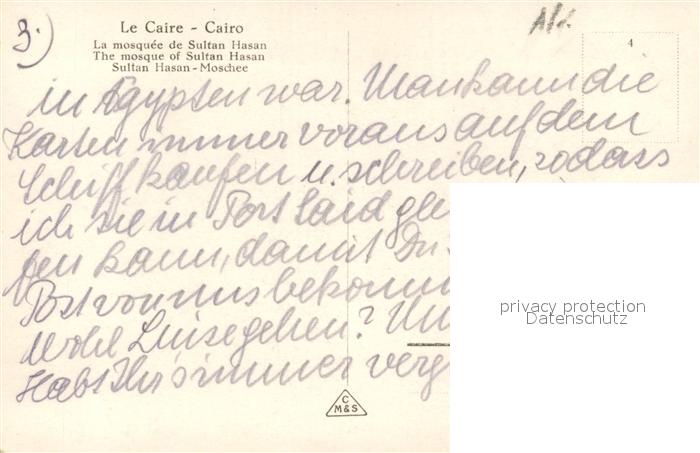 3.)
Le Caire - Cairo
La mosquée de Sultan Hasan
The mosque of Sultan Hasan
Sultan Hasan - Moschee
4
in Ägypten war. Man kann die
Karten immer voraus auf dem
Schiff kaufen u. schreiben, sodass
ich sie in Port Said gle
kann, damit Du
Post von uns bekomm
wohl Luise gehen? Un
Habt Ihr's immer verg
privacy protection
Datenschutz
C
M&S